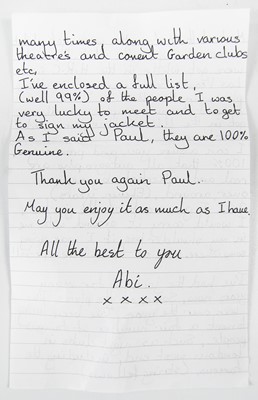 many times along with various
theatre's and conent Garden clubs
etc,
I've enclosed a full list,
(well 99%) of the people I was
very lucky to meet and to get
to sign my jacket.
As I said Paul, they are 100%
Genuine.
Thank you again Paul.
May you enjoy it as much as I have.
All the best to you
Abi.
x x x x